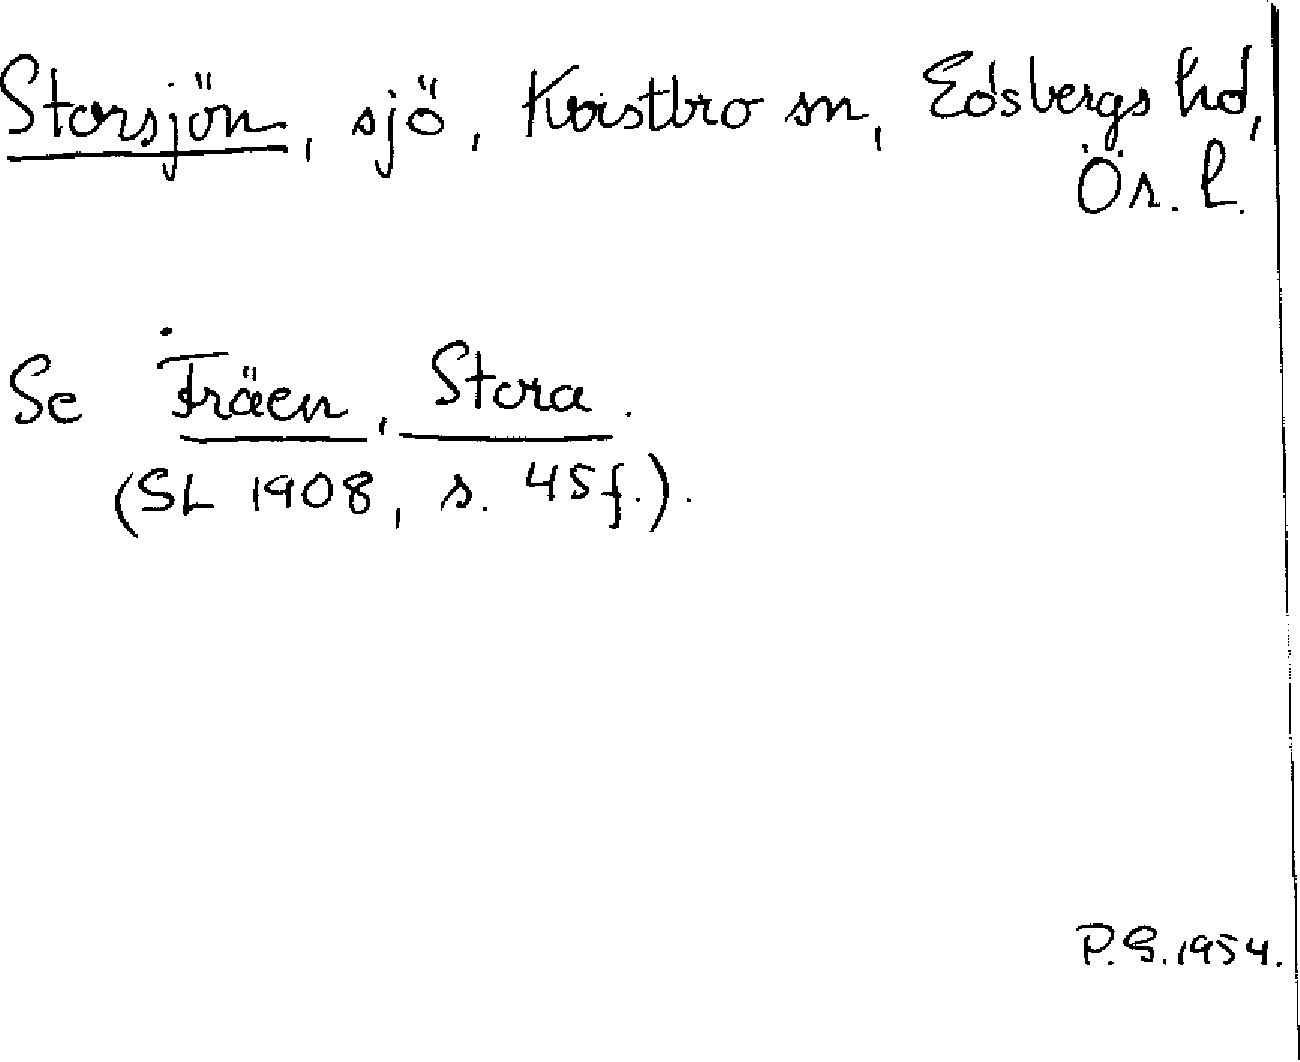 Storsjön, sjö, Kvistbro sn, Edsbergs hd,
Ör. l.
Se Träen, Stora.
(SL 1908, s. 45f.).
P.G.1954.